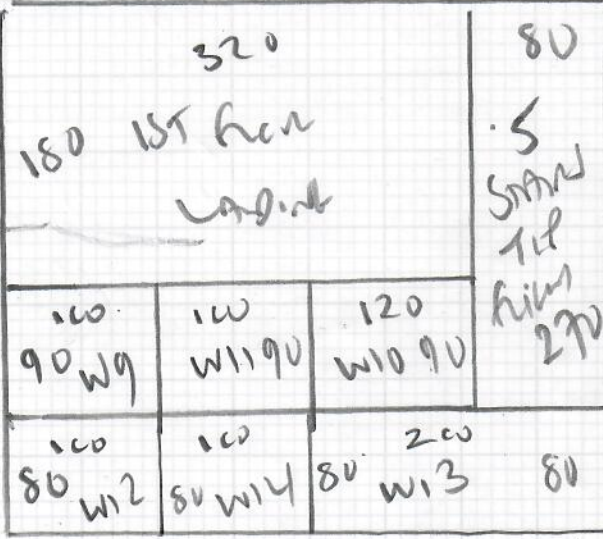 320
180 1ST Floor
Landing
80
.5
Stairs
Top
Flight
270
100
90 W9
100
W11 90
120
W10 90
100
80 W12
100
80 W14
200
80 W13 80